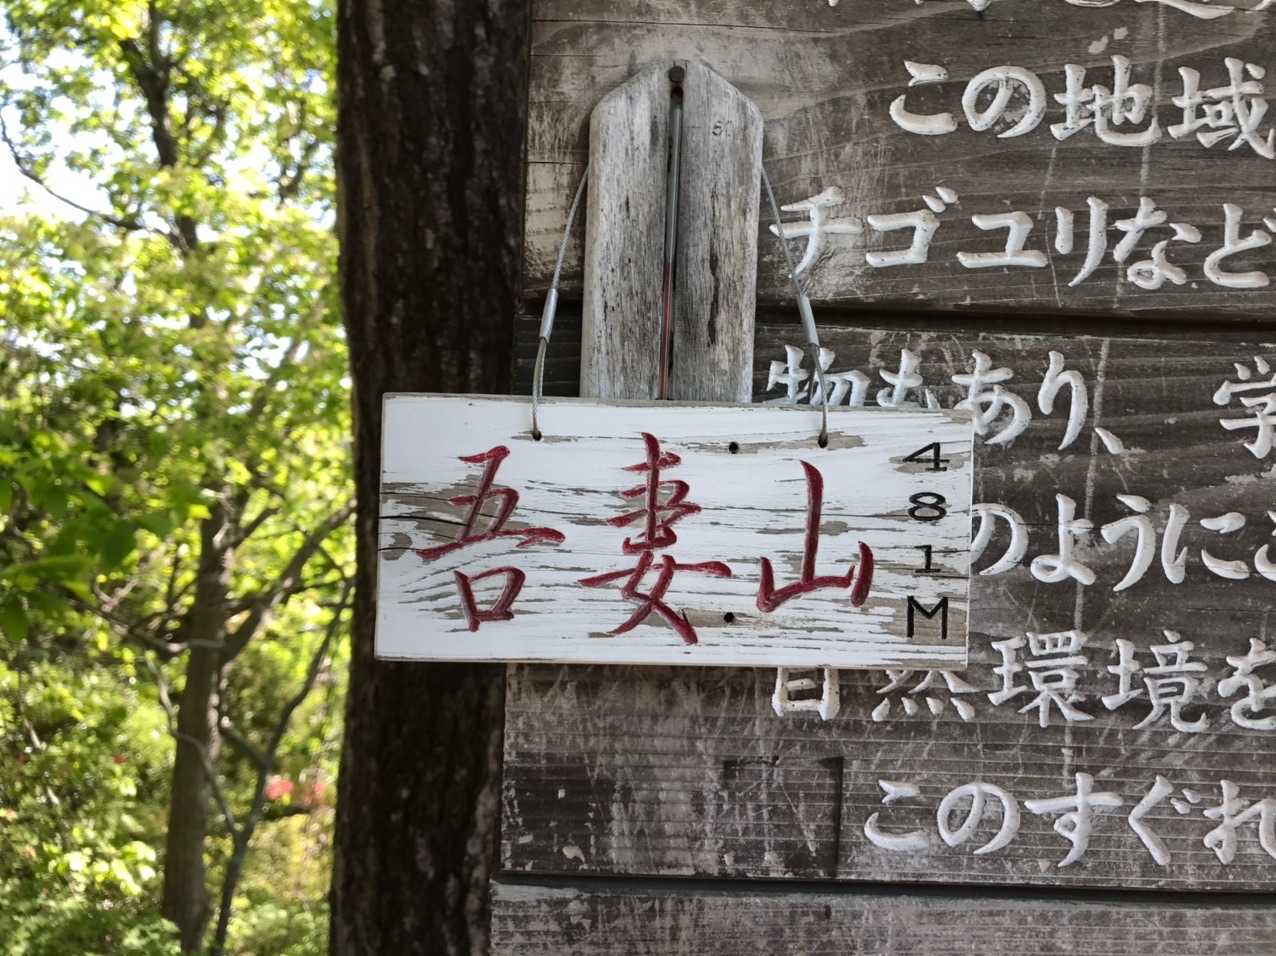 この地域
チゴユリなど
物もあり、学
のように
自然環境を
このすぐれ
吾妻山
481M